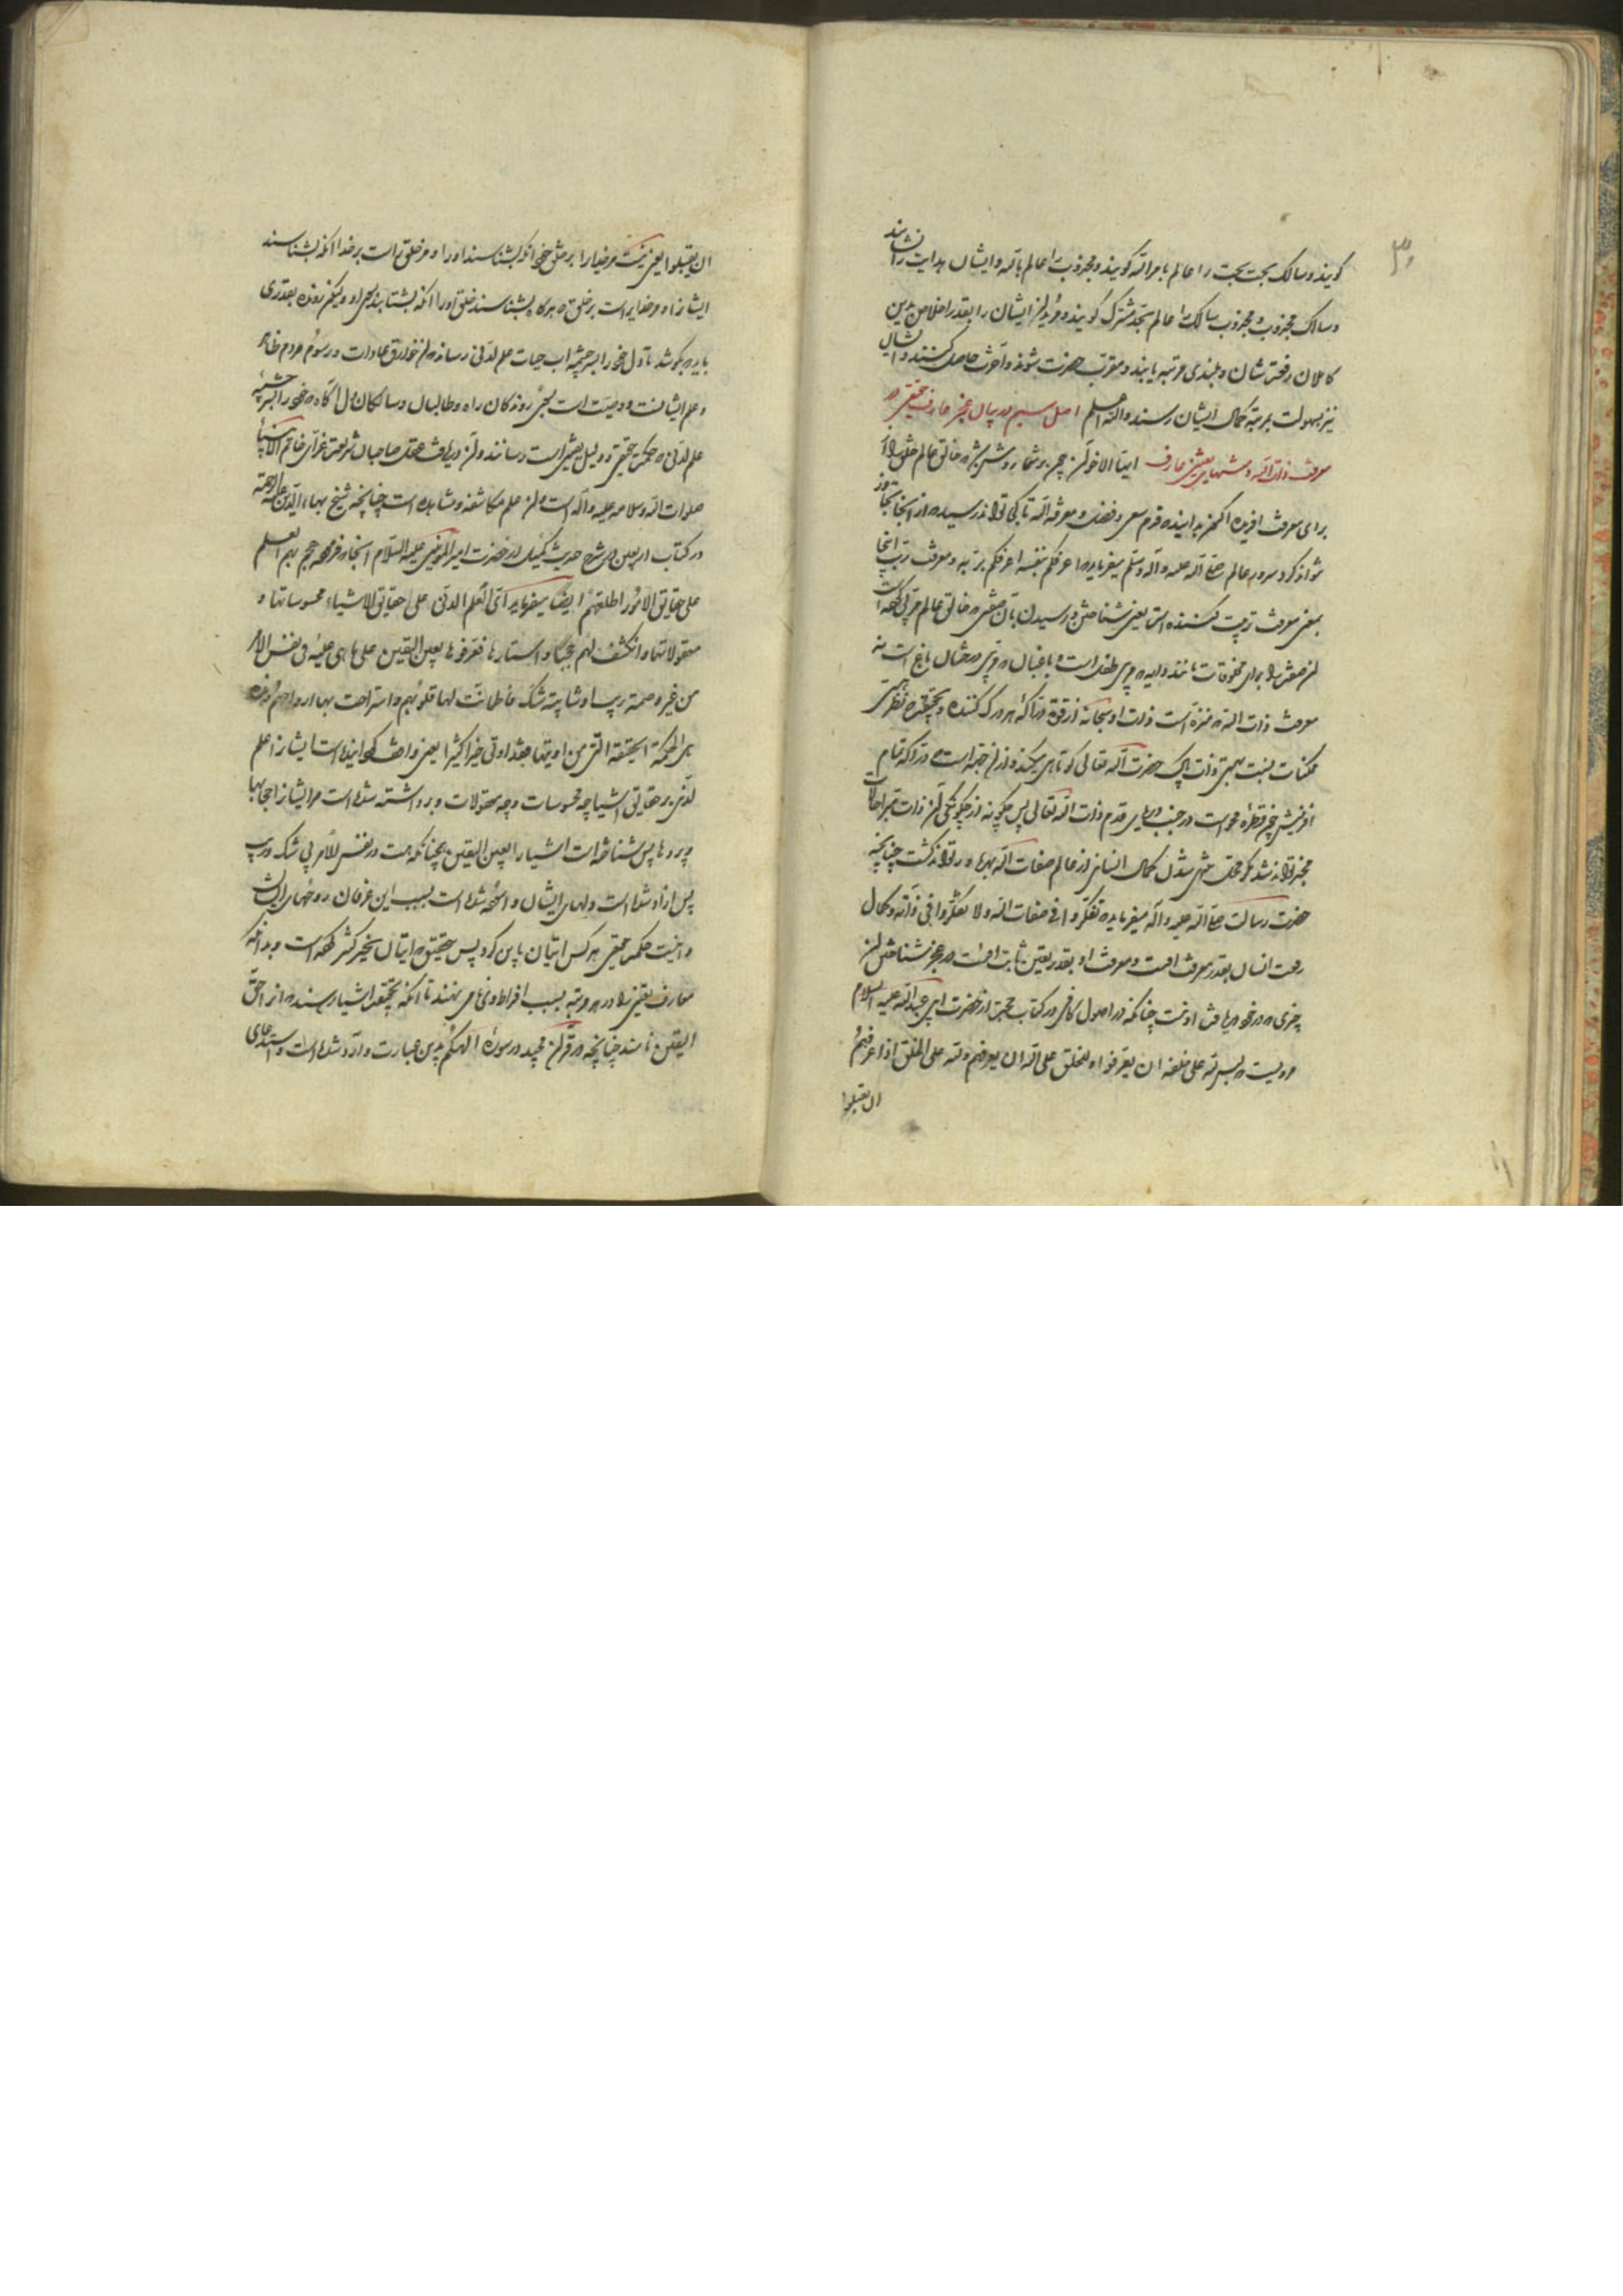 کویند و سالک بحت بحت را عالم بامرالله کویند و مجذوب را عالم بالله و ایشان هدایت را نشایند
و سالک مجذوب و مجذوب سالک را عالم بحد مشترک کویند و مریدان ایشان را بقدر اخلاص بدین
کاملان رفعت شان و بلندی مرتبه یابند و مقرب حضرت شوند و آخرت حاصل کنند و ایشان
نیز بسهولت بمرتبه کمال ایشان رسند والله اعلم اصل سیم در بیان عجز عارف حقیقی در
معرفت ذات الله و منتهای یقین عارف ایها الاخوان چون بر شما روشن شد که خالق عالم خلق را
برای معرفت افریده اکنون بدانید که قدم سعی و فضل و معرفة الله تا بکی تواند رسید و از انجا تجاوز
نتواند کرد سرور عالم صلی الله علیه وآله وسلم میفرماید که اعرفکم بنفسه اعرفکم بربه و معرفت رب اینجا
بمعنی معرفت تربیت کننده است یعنی شناختن و رسیدن بآن صفتی که خالق عالم مربی است
از صفتش برای مخلوقات مانند دایه که مربی طفل است و باغبان که مربی درختان باغ است نه
معرفت ذات الله که منزه است ذات او سبحانه از قوة دراکه هر درک کننده و بتحقیق که نظر
ممکنات نسبت بهستی ذات پاک حضرت الله تعالی کوتاهی میکند و از ان جمله است دراکه تمام
افرینش چون قطره محو است در جنب دریای قدم ذات الله تعالی پس چکونه از چکونکی ان ذات
مخبر تواند شد که منتهی شدن کمال انسانی از عالم صفات الله بهره ور تواند کشت چنانچه
حضرت رسالت صلی الله علیه وآله میفرماید که تفکروا فی صفات الله ولا تفکروا فی ذاته و کمال
رفعت انسان بقدر معرفت اوست و معرفت او بقدر یقین ثابت اوست در عجز شناختن ان
چیزی که در خور دریافت او نیست چنانکه در اصول کافی در کتاب حجت از حضرت ابی عبدالله علیه السلام
مرویست که لیس لله علی خلقه ان یعرفوا و للخلق علی الله ان یعرفهم ولله علی الخلق اذا عرفهم
ان یقبلوا
ان یقبلوا یعنی نیست مر خدا را بر خلق خود انکه بشناسند او را و مر خلق راست بر خدا انکه بشناساند
ایشانرا و مر خدایراست بر خلق که هرکاه بشناسند خلق او را انکه بشتابند و لیکن بنده بقدری
باید که بکوشد تا دل خود را بسرچشمه اب حیات علم لدنی رساند که ان خوارق عادات و رسوم مردم ظاهر
و علم ایشانست و ودیعت است بجهت روندکان راه و طالبان و سالکان دل اکاه که خود را بسرچشمه
علم لدنی که حکمت حقیقی و دلیل یقینی است رسانند و ان دریافت حقیقت صاحبان شریعت غرای خاتم الانبیا
صلوات الله وسلامه علیه وآله است و ان علم مکاشفه و مشاهده است چنانچه شیخ بهاء الدین علیه الرحمه
در کتاب اربعین در شرح حدیث کمیل از حضرت امیر المؤمنین علیه السلام انجا که فرموده هجم بهم العلم
علی حقایق الامور اطلعتهم ایضا میفرماید ای العلم اللدنی علی حقایق الاشیاء محسوساتها و
معقولاتها وانکشف لهم حجبها واستارها فعرفوها بعین الیقین علی ما هی علیه فی نفس الامر
من غیر وصمة ریب او شایبة شک فاطمأنت لها قلوبهم واستراحت بها ارواحهم وهذه
هی الحکمة الحقیقة التی من اوتیها فقد اوتی خیرا کثیرا یعنی واقف کردانیده است ایشانرا علم
لدنی بر حقایق اشیا چه محسوسات و چه معقولات و برداشته شده است مر ایشانرا حجابها
و پردها پس شناخته است اشیا را بعین الیقین چنانکه هست در نفس الامر بی شک و ریب
پس ازاد شده است دلهای ایشان و اسوده شده است بسبب این عرفان روحهای ایشان
و اینست حکمت حقیقی هر کس اتیان باین کرد پس بتحقیق که اتیان بخیر کثیر کرده است و بدانکه
معارف یقینی را در هر مرتبه بسبب افراط نامی نهند تا انکه بحقیقت اشیا رسند که انرا حق
الیقین نامند چنانچه در قران مجید در سورۀ الهیکم بدین عبارت وارد شده است و استدعای